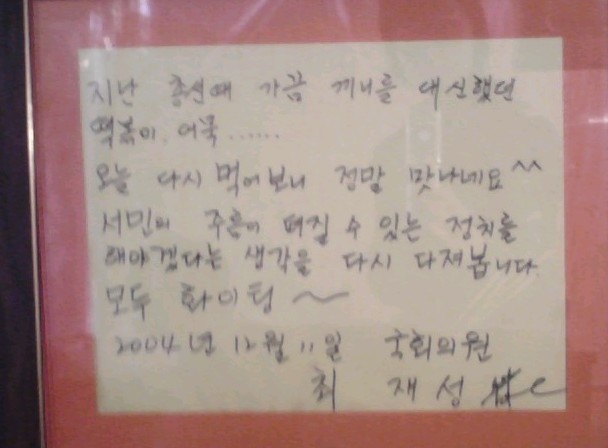 지난 총선때 가끔 끼니를 대신했던
떡볶이, 어묵......
오늘 다시 먹어보니 정말 맛나네요^^
서민의 주름이 펴질 수 있는 정치를
해야겠다는 생각을 다시 다져봅니다.
모두 화이팅~
2004년 12월 11일 국회의원
최 재성